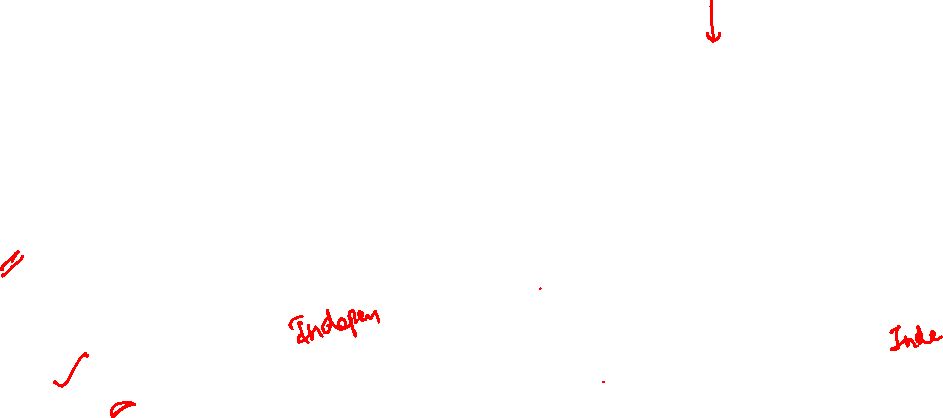 Indepen
Inde